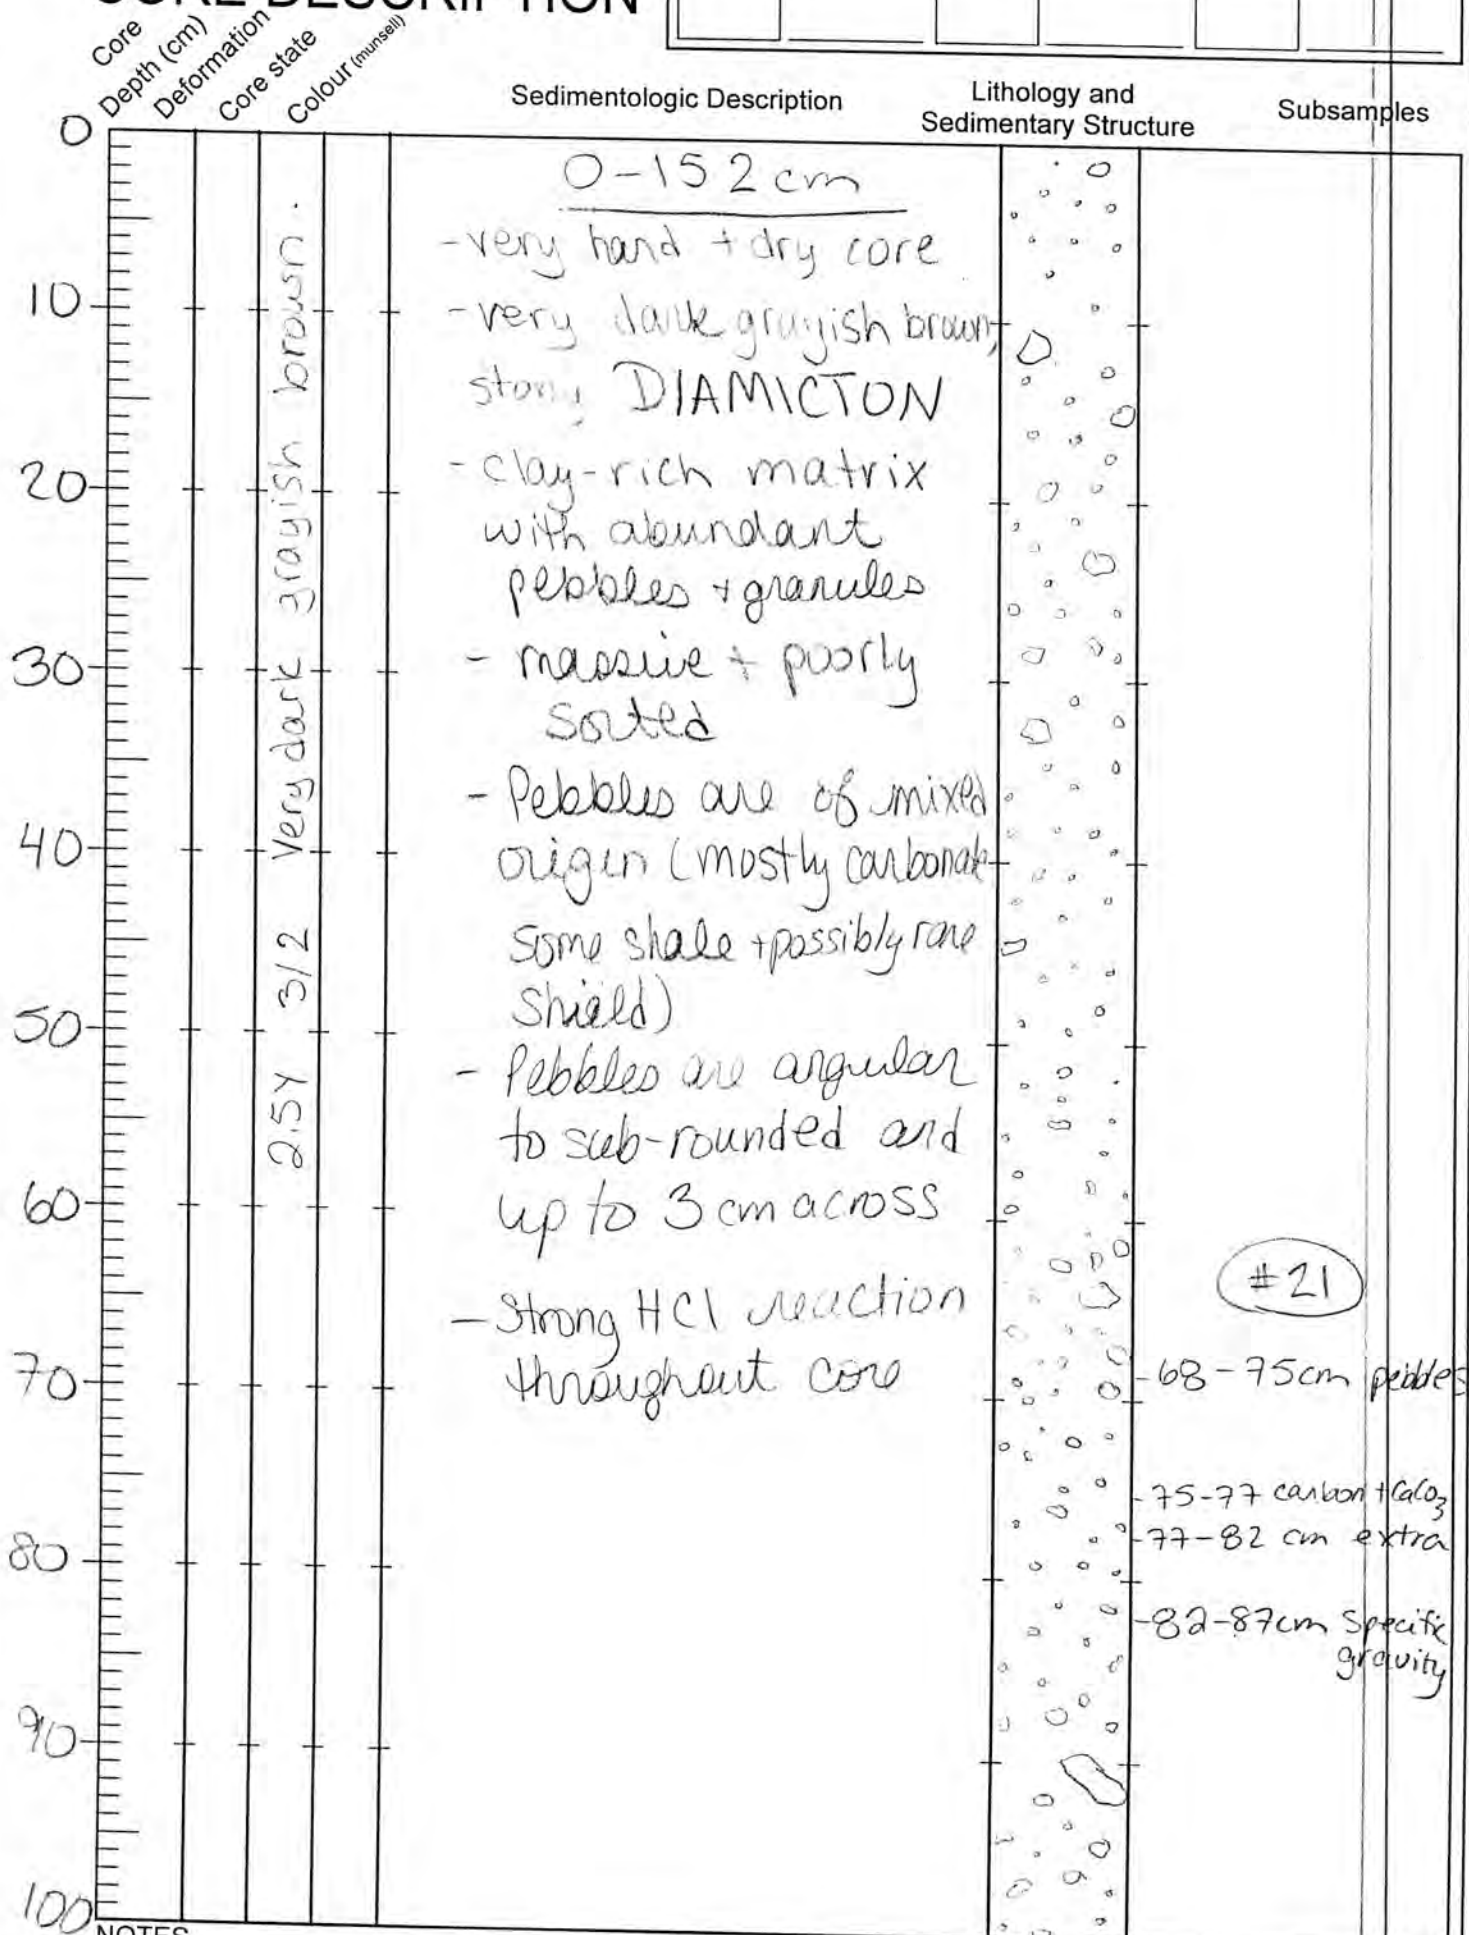 CORE DESCRIPTION
Core
Depth (cm)
Deformation
Core state
Colour (munsell)
Sedimentologic Description
Lithology and
Sedimentary Structure
Subsamples
0
10
20
30
40
50
60
70
80
90
100
2.5Y 3/2 Very dark grayish brown.
0-152 cm
- very hard + dry core
- very dark grayish brown,
stony DIAMICTON
- clay-rich matrix
with abundant
pebbles + granules
- massive + poorly
sorted
- Pebbles are of mixed
origin (mostly carbonate
some shale + possibly rare
shield)
- Pebbles are angular
to sub-rounded and
up to 3 cm across
- Strong HCl reaction
throughout core
#21
-68-75cm pebbles
-75-77 carbon + CaCO3
-77-82 cm extra
-82-87cm Specific
gravity
NOTES